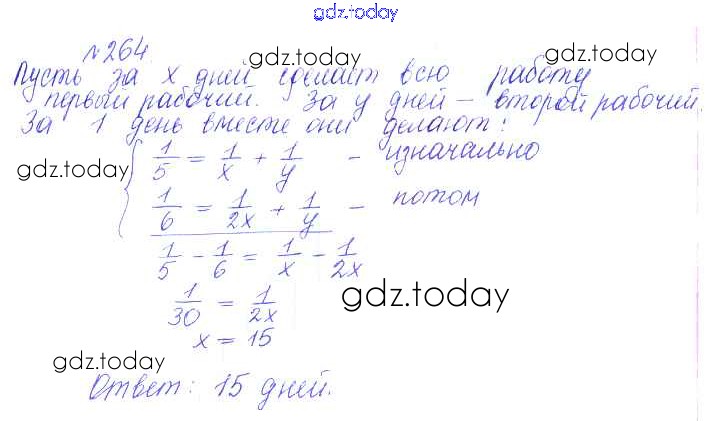 gdz.today
№264. gdz.today
Пусть за x дней сделает всю работу
первый рабочий. За y дней – второй рабочий.
За 1 день вместе они делают:
gdz.today { 1/5 = 1/x + 1/y – изначально
1/6 = 1/2x + 1/y – потом
1/5 - 1/6 = 1/x - 1/2x
1/30 = 1/2x gdz.today
x = 15
gdz.today
Ответ: 15 дней.
gdz.today